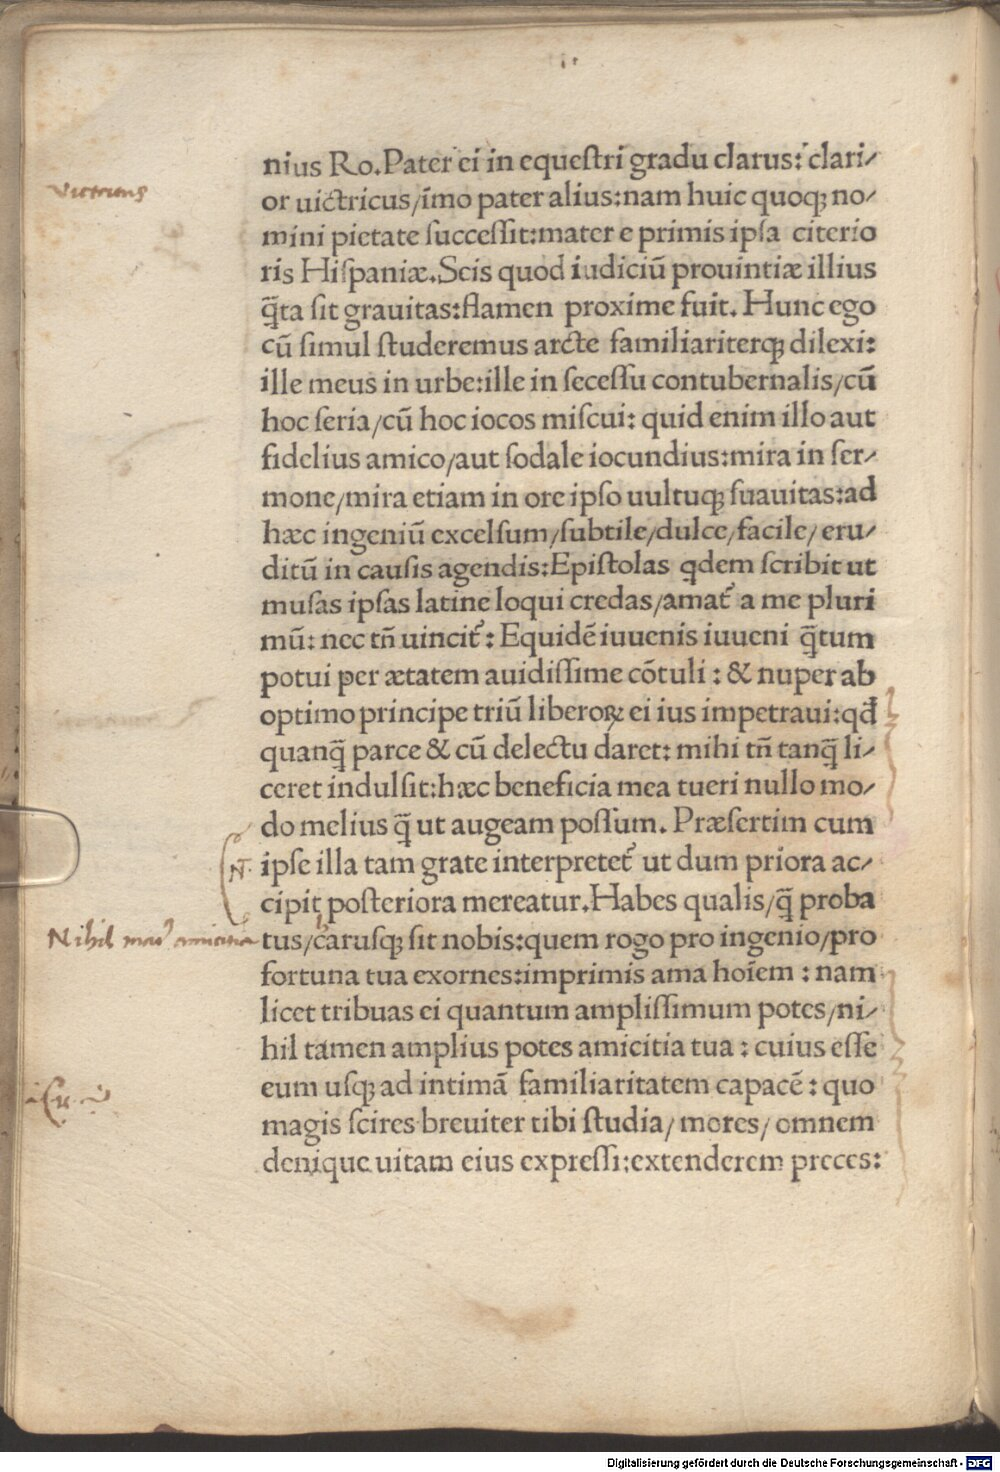 nius Ro.Pater ei in equeſtri gradu clarus: clari⸗
or uictricus/īmo pater alius:nam huic quoqꝫ no⸗
mini pietate ſucceſſit:mater e primis ipſa citerio
ris Hiſpaniæ.Scis quod iudiciū prouintiæ illius
q̄ta ſit grauitas:flamen proxime fuit. Hunc ego
cū ſimul ſtuderemus arcte familiariterqꝫ dilexi:
ille meus in urbe:ille in ſeceſſu contubernalis/cū
hoc ſeria/cū hoc iocos miſcui: quid enim illo aut
fidelius amico/aut ſodale iocundius:mira in ſer⸗
mone/mira etiam in ore ipſo uultuqꝫ ſuauitas:ad
hæc ingeniū excelſum/ſubtile/dulce/facile/ eru⸗
ditū in cauſis agendis:Epiſtolas qdem ſcribit ut
muſas ipſas latine loqui credas/amat᷑ a me pluri
mū: nec tñ uincit᷑: Equidē iuuenis iuueni q̄tum
potui ꝑ ætatem auidiſſime cōtuli : & nuper ab
optimo principe triū liberoꝝ ei ius impetraui:qđ
quanq̄ parce & cū delectu daret: mihi tñ tanq̄ li⸗
ceret indulſit:hæc beneficia mea tueri nullo mo⸗
do melius q̄ ut augeam poſſum. Præſertim cum
Nᵗ. ipſe illa tam grate interpretet᷑ ut dum priora ac⸗
cipit poſteriora mereatur.Habes qualis/q̄ proba
Nihil mai᷒ amicitia tus/carusqꝫ ſit nobis:quem rogo pro ingenio/pro
fortuna tua exornes:imprimis ama hoīem : nam
licet tribuas ei quantum ampliſſimum potes/ni⸗
hil tamen amplius potes amicitia tua : cuius eſſe
eum uſqꝫ ad intimā familiaritatem capacē : quo
magis ſcires breuiter tibi ſtudia/ mores/ omnem
denique uitam eius expreſſi:extenderem preces:
Digitalisierung gefördert durch die Deutsche Forschungsgemeinschaft - DFG